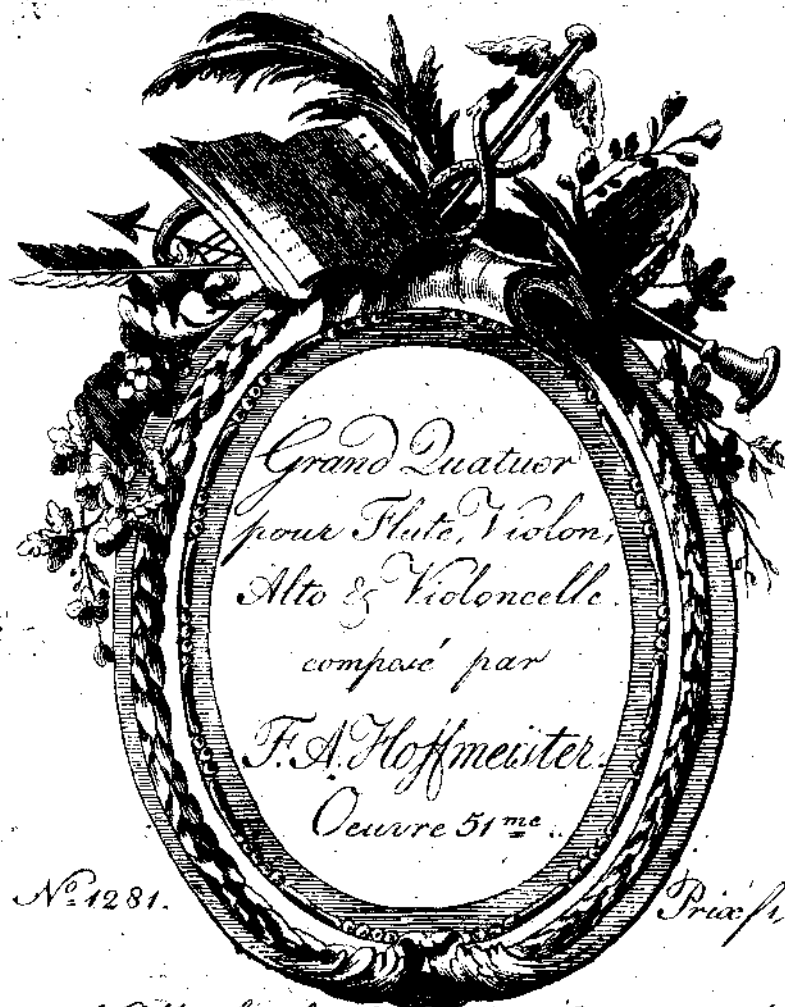 Grand Quatuor
pour Flute, Violon,
Alto & Violoncelle.
composé par
F. A. Hoffmeister.
Oeuvre 51me.
No. 1281.
Prix f 1,